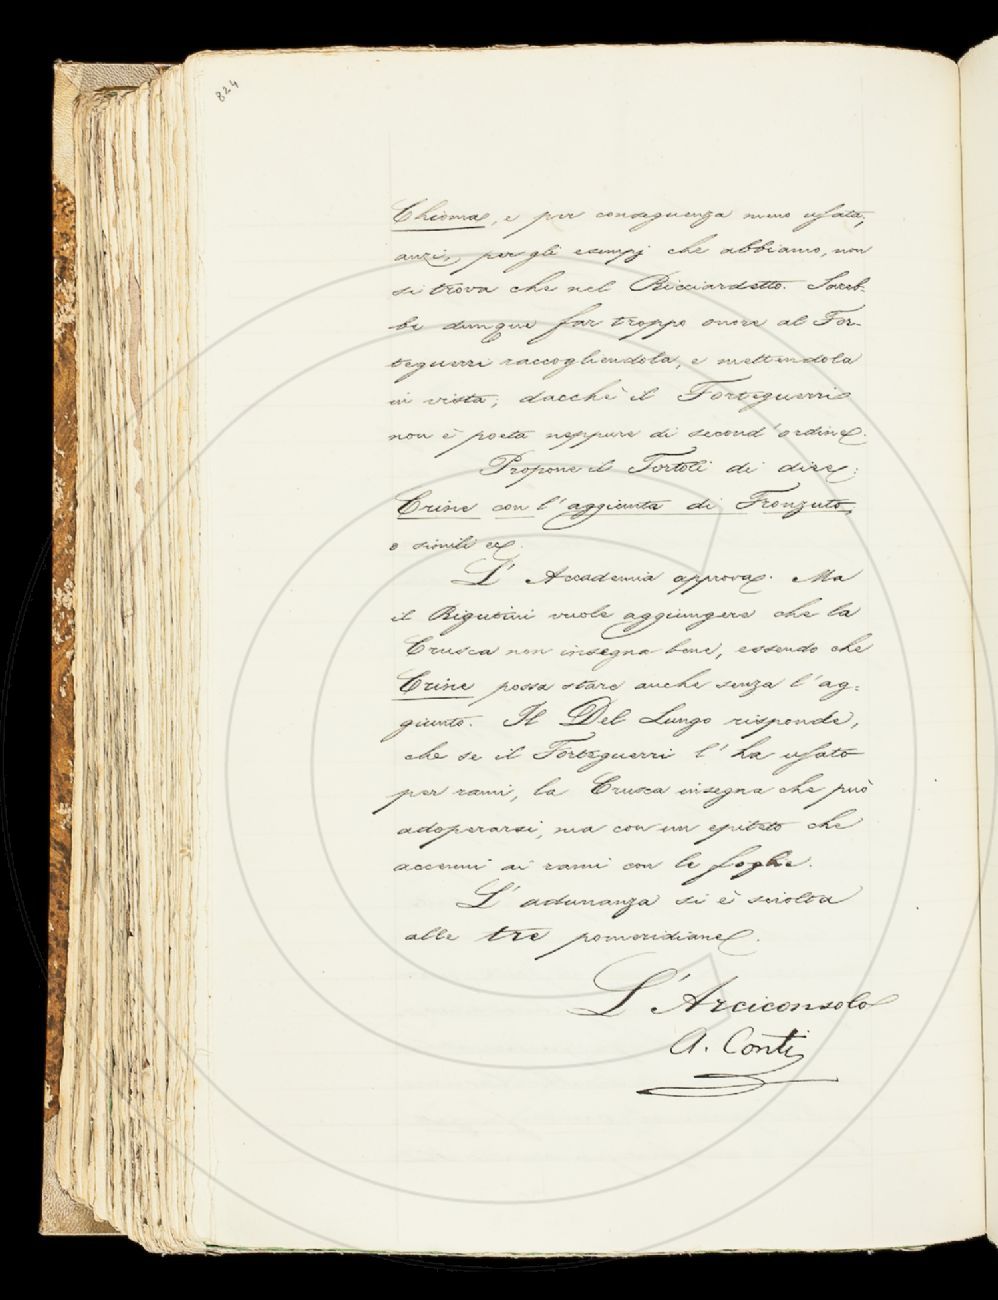 824
Chioma, e per conseguenza meno usata,
anzi, per gli esempj che abbiamo, non
si trova che nel Ricciardetto. Sareb-
be dunque far troppo onore al For-
teguerri raccogliendola, e mettendola
in vista; dacchè il Forteguerri
non è poeta neppure di second'ordine.
Propone il Tortoli di dire:
Crine con l'aggiunta di Fronzuto,
o simili ec.
L'Accademia approva. Ma
il Rigutini vuole aggiungere che la
Crusca non insegna bene, essendo che
Crine possa stare anche senza l'ag-
giunto. Il Del Lungo risponde,
che se il Forteguerri l'ha usato
per rami, la Crusca insegna che può
adoperarsi, ma con un epiteto che
accenni ai rami con le foglie.
L'adunanza si è sciolta
alle tre pomeridiane.
L'Arciconsolo
A. Conti